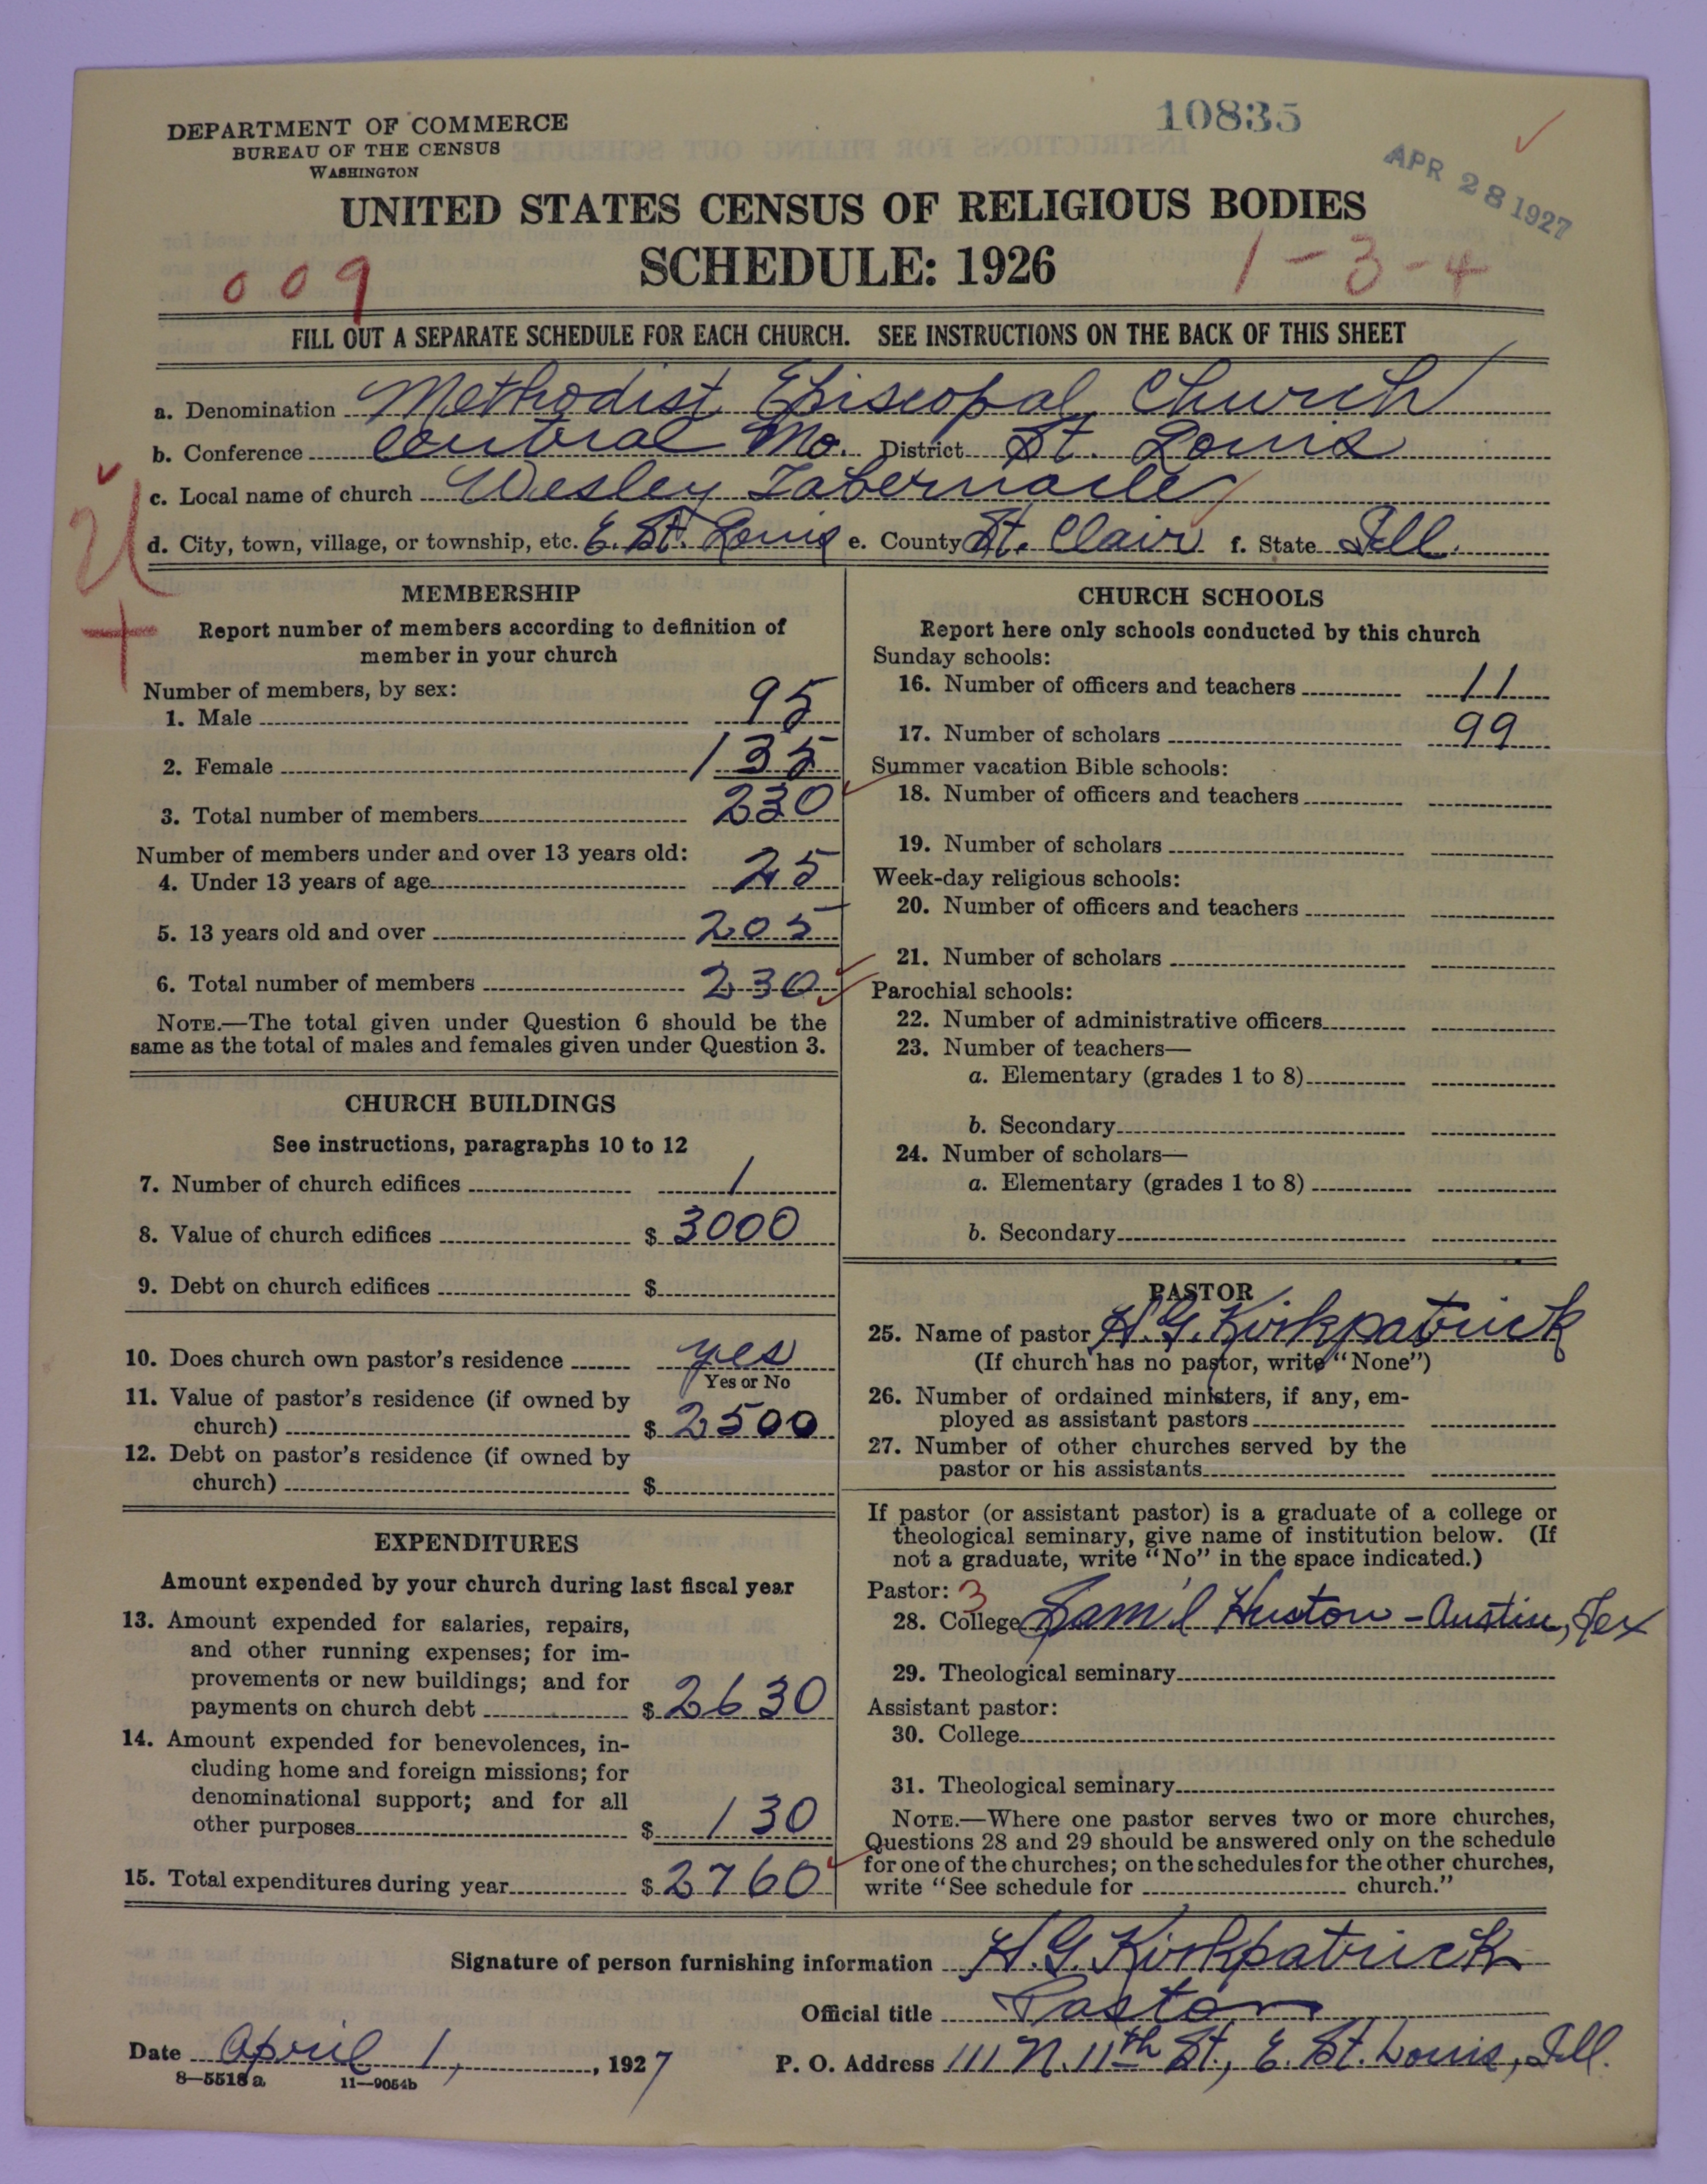 10835
DEPARTMENT OF COMMERCE
BUREAU OF THE CENSUS
WASHINGTON
APR 28 1927
UNITED STATES CENSUS OF RELIGIOUS BODIES
SCHEDULE: 1926
009
1-3-4
FILL OUT A SEPARATE SCHEDULE FOR EACH CHURCH. SEE INSTRUCTIONS ON THE BACK OF THIS SHEET
a. Denomination Methodist Episcopal Church
b. Conference Central Mo. District St. Louis
c. Local name of church Wesley Tabernacle
d. City, town, village, or township, etc. E. St. Louis e. County St. Clair f. State Ill.
MEMBERSHIP
Report number of members according to definition of
member in your church
Number of members, by sex:
1. Male 95
2. Female 135
3. Total number of members 230
Number of members under and over 13 years old:
4. Under 13 years of age 25
5. 13 years old and over 205
6. Total number of members 230
NOTE.—The total given under Question 6 should be the
same as the total of males and females given under Question 3.
CHURCH BUILDINGS
See instructions, paragraphs 10 to 12
7. Number of church edifices 1
8. Value of church edifices $ 3000
9. Debt on church edifices $
10. Does church own pastor's residence yes
Yes or No
11. Value of pastor's residence (if owned by
church) $ 2500
12. Debt on pastor's residence (if owned by
church) $
EXPENDITURES
Amount expended by your church during last fiscal year
13. Amount expended for salaries, repairs,
and other running expenses; for im-
provements or new buildings; and for
payments on church debt $ 2630
14. Amount expended for benevolences, in-
cluding home and foreign missions; for
denominational support; and for all
other purposes $ 130
15. Total expenditures during year $ 2760
CHURCH SCHOOLS
Report here only schools conducted by this church
Sunday schools:
16. Number of officers and teachers 11
17. Number of scholars 99
Summer vacation Bible schools:
18. Number of officers and teachers
19. Number of scholars
Week-day religious schools:
20. Number of officers and teachers
21. Number of scholars
Parochial schools:
22. Number of administrative officers
23. Number of teachers—
a. Elementary (grades 1 to 8)
b. Secondary
24. Number of scholars—
a. Elementary (grades 1 to 8)
b. Secondary
PASTOR
25. Name of pastor H. G. Kirkpatrick
(If church has no pastor, write "None")
26. Number of ordained ministers, if any, em-
ployed as assistant pastors
27. Number of other churches served by the
pastor or his assistants
If pastor (or assistant pastor) is a graduate of a college or
theological seminary, give name of institution below. (If
not a graduate, write "No" in the space indicated.)
Pastor: 3
28. College Sam'l Huston - Austin, Tex
29. Theological seminary
Assistant pastor:
30. College
31. Theological seminary
NOTE.—Where one pastor serves two or more churches,
Questions 28 and 29 should be answered only on the schedule
for one of the churches; on the schedules for the other churches,
write "See schedule for church."
Signature of person furnishing information H. G. Kirkpatrick
Official title Pastor
Date April 1, , 1927 P. O. Address 111 N. 11th St., E. St. Louis, Ill.
8—5518 a 11—9054b